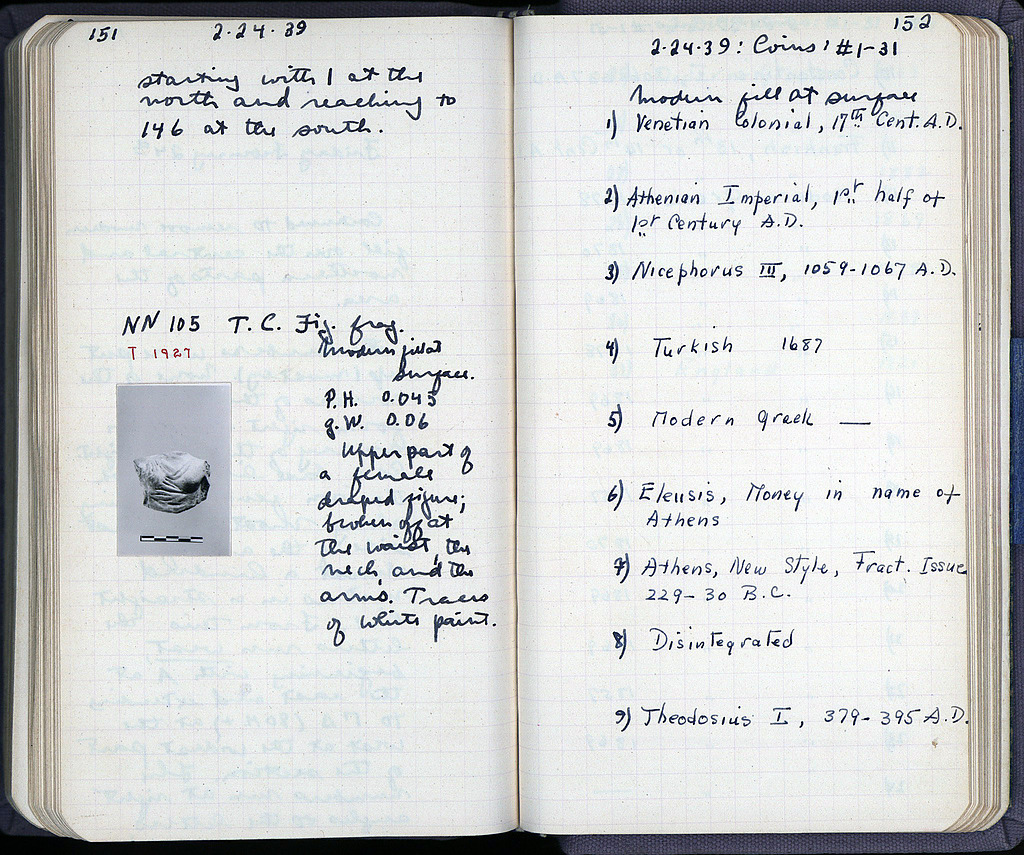 151 2·24·39
starting with 1 at the
north and reaching to
146 at the south.
NN 105 T. C. Fig. frag.
T 1927
Modern fill at
surface.
P.H. 0.045
g.W. 0.06
Upper part of
a female
draped figure;
broken off at
the waist, the
neck, and the
arms. Traces
of white paint.
152
2·24·39: Coins: #1-31
Modern fill at surface
1) Venetian Colonial, 17th Cent. A.D.
2) Athenian Imperial, 1st half of
1st Century A.D.
3) Nicephorus III, 1059-1067 A.D.
4) Turkish 1687
5) Modern Greek —
6) Eleusis, Money in name of
Athens
7) Athens, New Style, Fract. Issue
229-30 B.C.
8) Disintegrated
9) Theodosius I, 379-395 A.D.